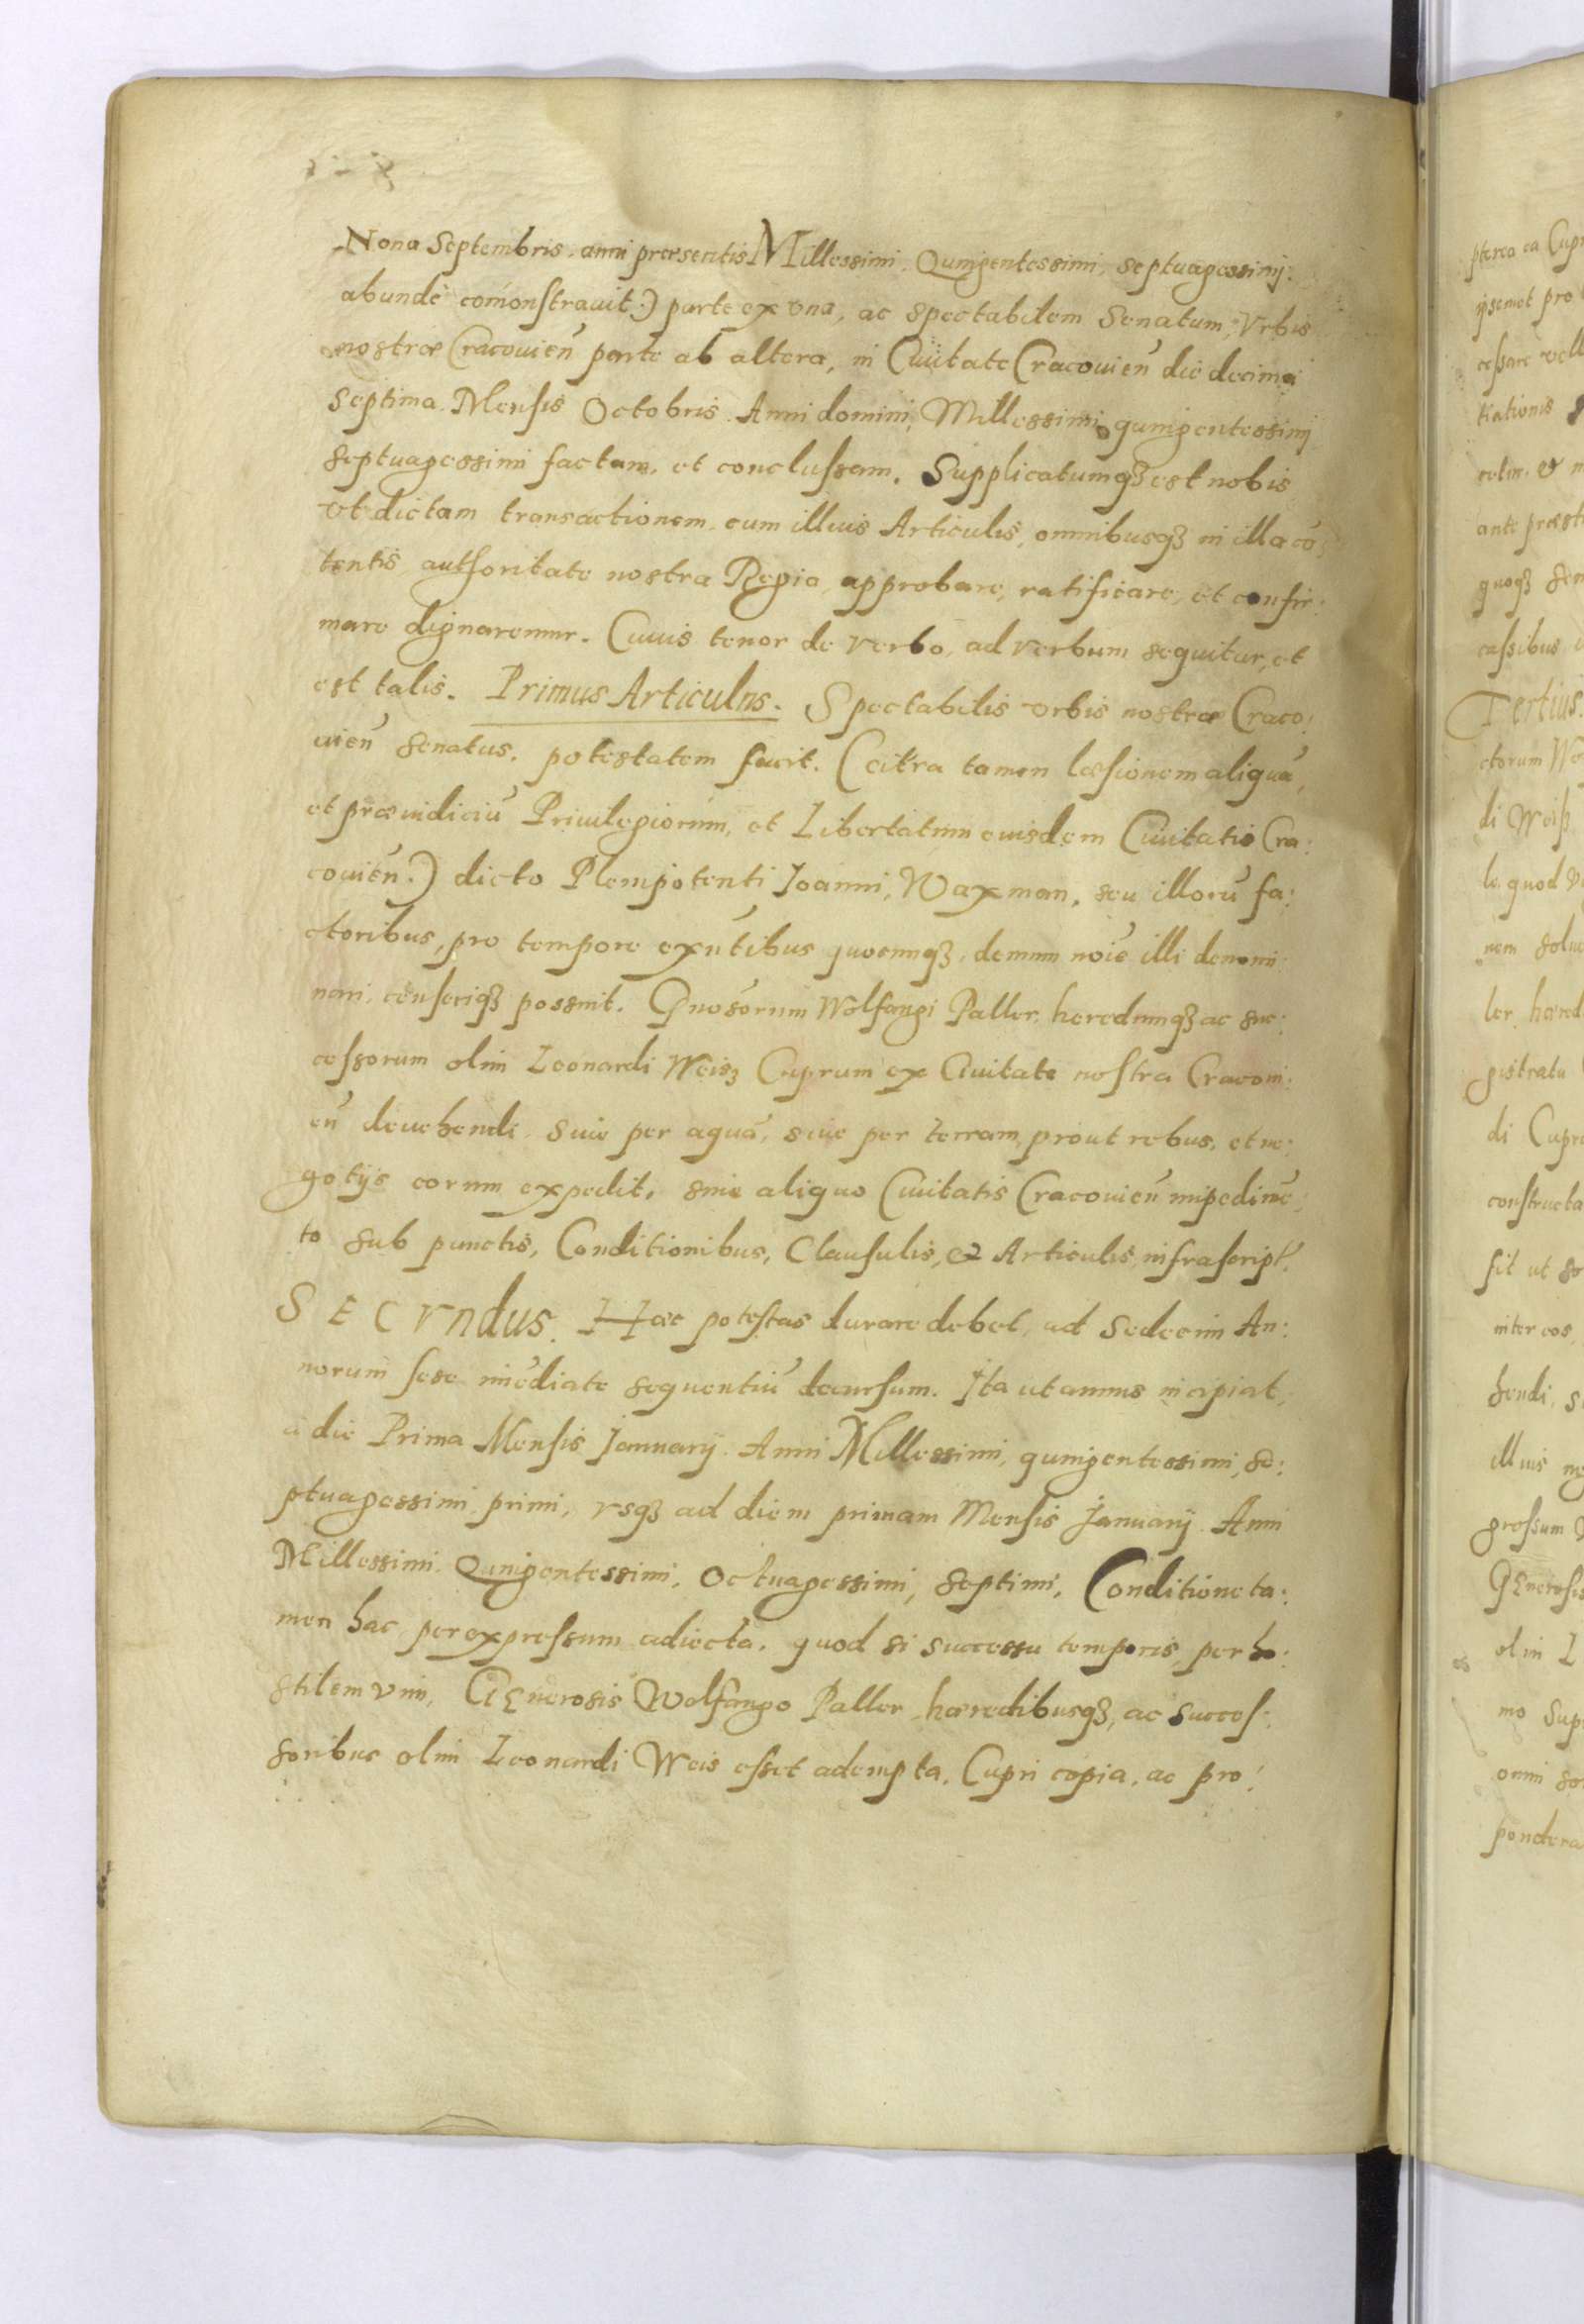 Nona Septembris, anni præsentis Millessimi, Quingentessimi, septuagessimi:
abundè com̄onstrauit:) parte ex vna, ac spectabilem Senatum, Vrbis
nostræ Cracouień parte ab altera, in Ciuitate Cracouień die decima
septima Mensis Octobris Anni domini, Millessimi quingentessimi
septuagessimi factam, et conclussam. Supplicatumqꝫ est nobis
vt dictam transactionem, cum illius Articulis, omnibusqꝫ in illa cō
tentis authoritate nostra Regia, approbare, ratificare, et confir:
mare dignaremur. Cuius tenor de verbo, ad verbum sequitur, et
est talis. Primus Articulus. Spectabilis vrbis nostræ Craco:
uień senatus, potestatem facit. (citra tamen læsionem aliquā,
et præiudiciū Priuilegiorum, et Libertatum euisdem Ciuitatis Cra:
couień:) dicto Plenipotenti Ioanni, Waxman, seu illorū fa:
ctoribus, pro tempore exn̄tibus quocunqꝫ, demum noīe illi denomi:
nari, cēnseriqꝫ possint. Gnosorum Wolfangi Paller, heredumqꝫ ac suc:
cessorum olim Leonardi Weisꝫ Cuprum ex Ciuitate nostra Cracoui:
eń deuehendi siue per aquā, siue per terram, prout rebus, et ne:
gotijs eorum expedit, sine aliquo Ciuitatis Cracouień impedimē:
to sub punctis, Conditionibus, Clausulis, & Articulis, infrascript.
SECVndus. Hæc potestas durare debet, ad Sedecim An:
norum sese im̄ediate sequentiū decursum. Ita ut annus incipiat,
a die Prima Mensis Ianuarij Anni Millessimi, quingentessimi, se:
ptuagessimi, primi, vsqꝫ ad diem primam Mensis Ianuarij Anni
Millessimi, Quingentessimi, Octuagessimi, septimi, Conditione ta:
men hac per expressum adiecta, quod si successu temporis, per ho:
stilem vim, GEnerosis Wolfango Paller hæredibusqꝫ, ac Succes:
soribus olim Leonardi Weis esset adempta, Cupri copia, ac pro:
pterea ea Cupr
ipsemet pro
cessare vell
tiationis
ante præst
quoqꝫ
cassibus
Tertius.
ctorum
di Weisꝫ
le quod
nem
ler, hæred
gistratu
di Cupr
constructa
sit ut
inter eos
hendi,
illius
gressum
GEnerosis
olim L
mo Sup
omni
pondera